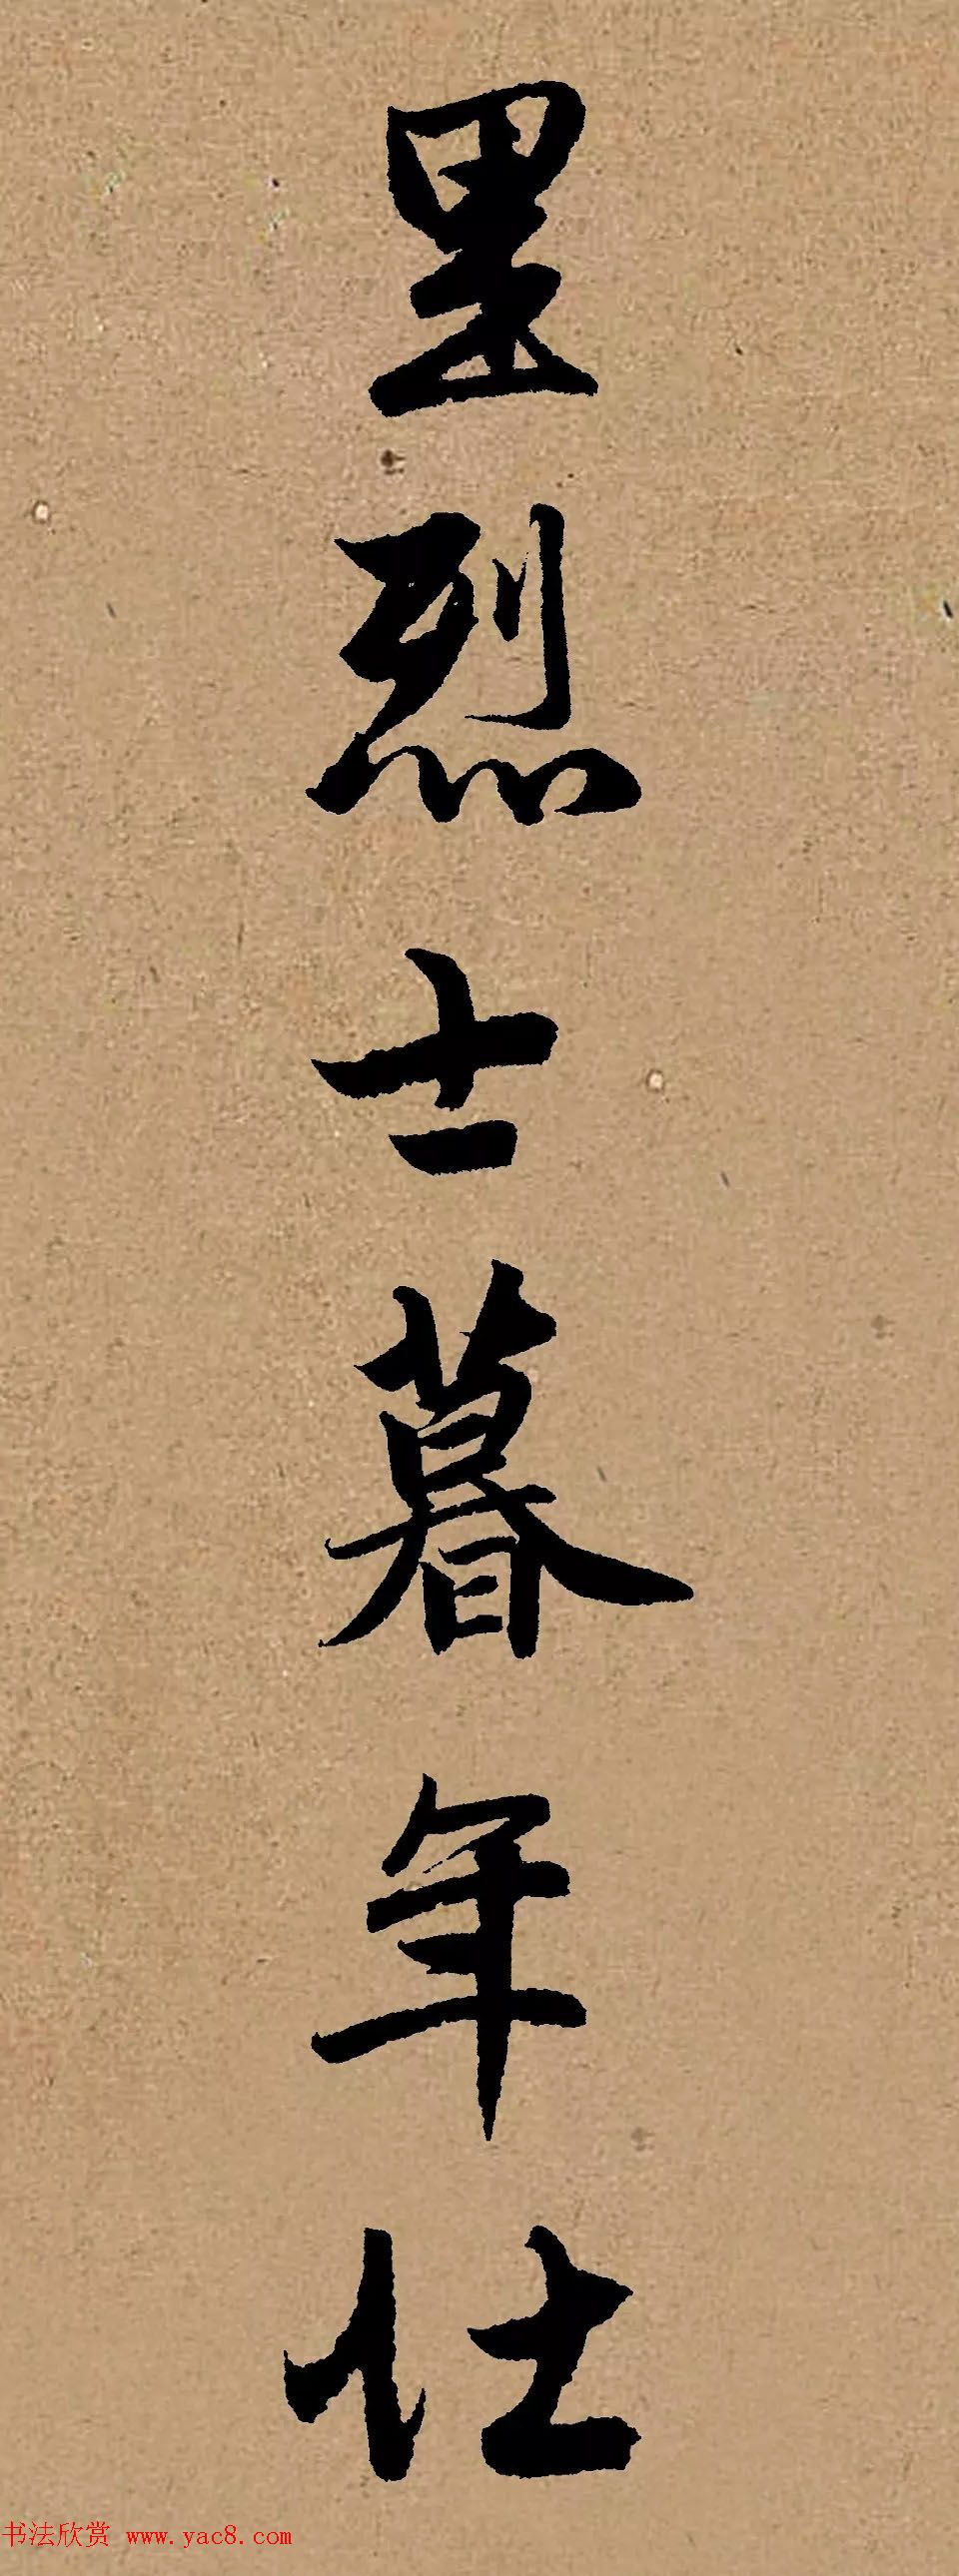 里烈士暮年仕
书法欣赏 www.yac8.com